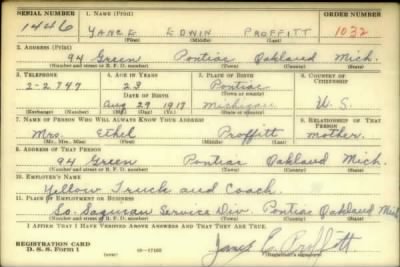 SERIAL NUMBER 1. NAME (Print) ORDER NUMBER
1446 EDWIN PROFFITT 1032
(First) (Middle) (Last)
2. ADDRESS (Print)
94 Green Pontiac Oakland Mich.
(Number and street or R. F. D. number) (Town) (County) (State)
3. TELEPHONE 4. AGE IN YEARS 5. PLACE OF BIRTH 6. COUNTRY OF CITIZENSHIP
2-2747 23 Pontiac
DATE OF BIRTH (Town or county)
Aug 29 1917 Michigan U. S.
(Exchange) (Number) (Mo.) (Day) (Yr.) (State or country)
7. NAME OF PERSON WHO WILL ALWAYS KNOW YOUR ADDRESS 8. RELATIONSHIP OF THAT PERSON
Mrs. Ethel Proffitt mother.
(Mr., Mrs., Miss) (First) (Middle) (Last)
9. ADDRESS OF THAT PERSON
94 Green Pontiac Oakland Mich.
(Number and street or R. F. D. number) (Town) (County) (State)
10. EMPLOYER'S NAME
Yellow Truck and Coach.
11. PLACE OF EMPLOYMENT OR BUSINESS
So. Saginaw Service Div. Pontiac Oakland Mich
(Number and street or R. F. D. number) (Town) (County) (State)
I AFFIRM THAT I HAVE VERIFIED ABOVE ANSWERS AND THAT THEY ARE TRUE.
REGISTRATION CARD
D. S. S. Form 1 (Registrant's signature)